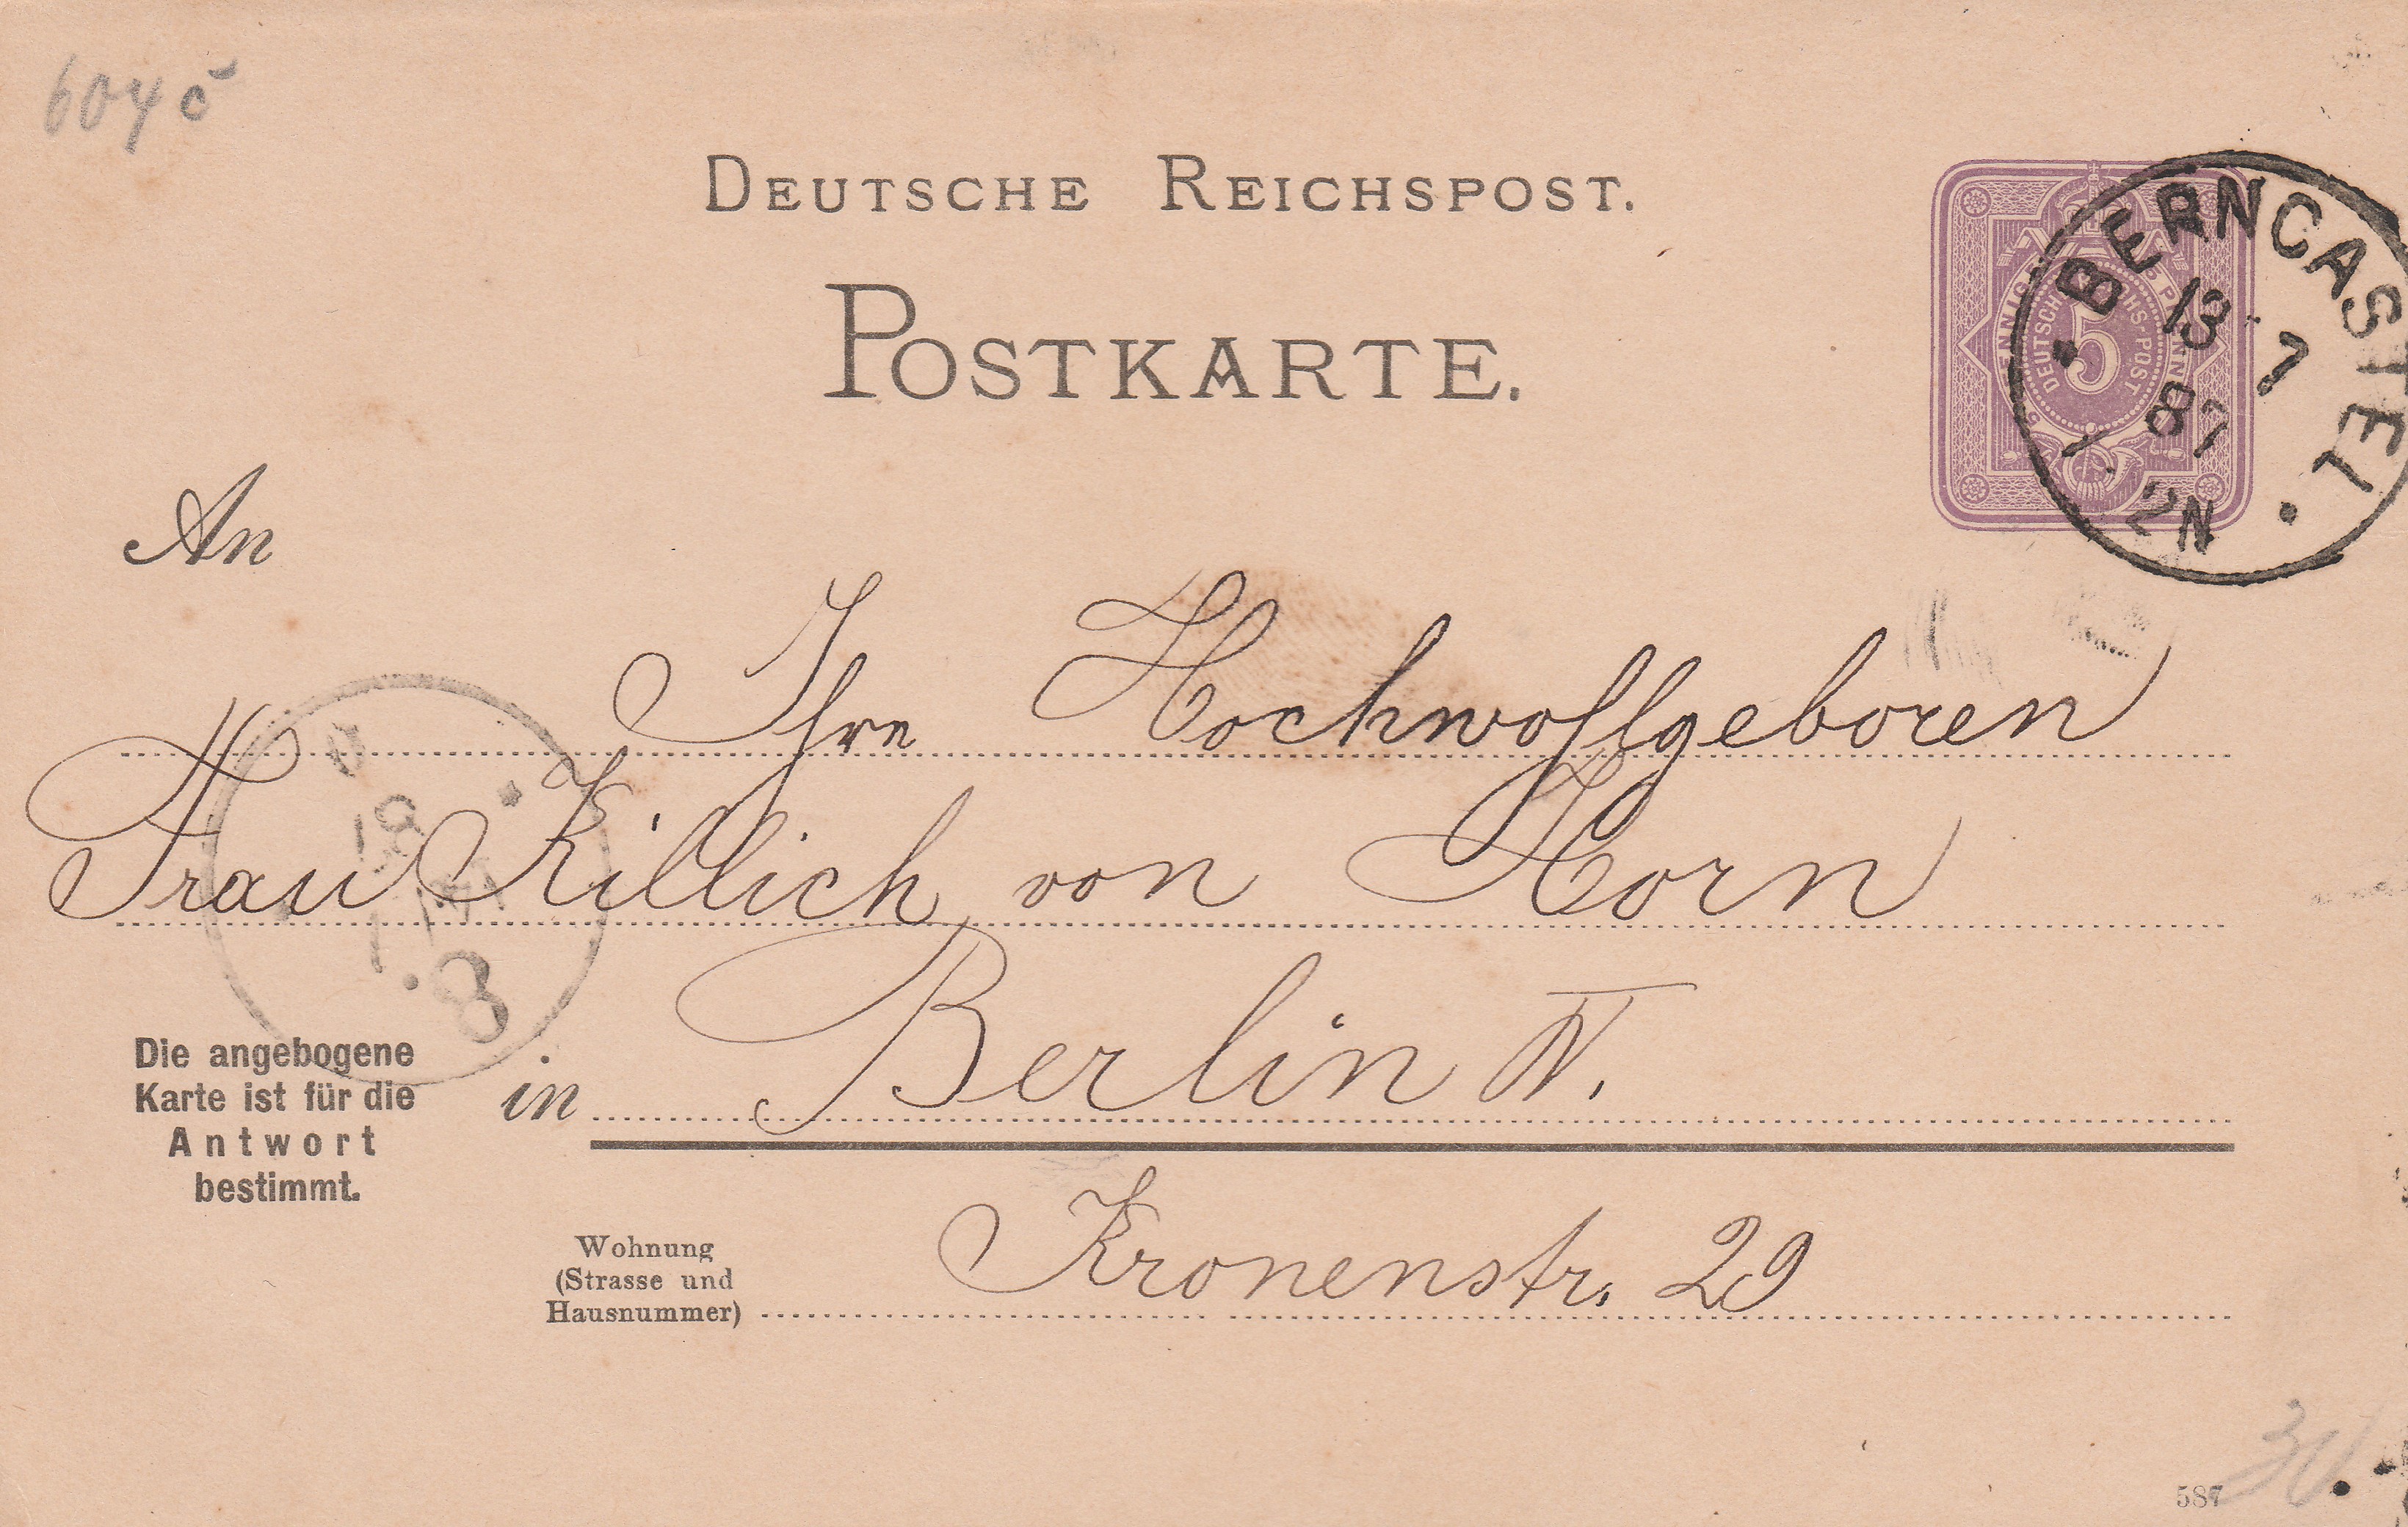 604 c
DEUTSCHE REICHSPOST.
POSTKARTE.
5 PFENNIG
DEUTSCHE REICHS-POST
5
BERNCASTEL
13 7
87
1. 2N
An
Ihre Hochwohlgeboren
Frau Killich von Horn
in Berlin W.
Die angebogene
Karte ist für die
Antwort
bestimmt.
Wohnung
(Strasse und
Hausnummer)
Kronenstr. 29
587